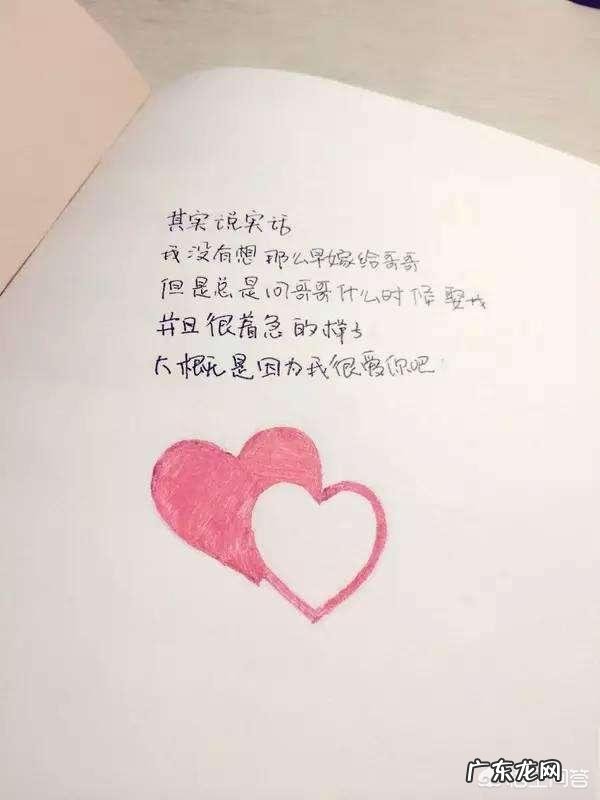 其实说实话
我没有想那么早嫁给哥哥
但是总是问哥哥什么时候娶我
并且很着急的样子
大概是因为我很爱你吧
广东龙网